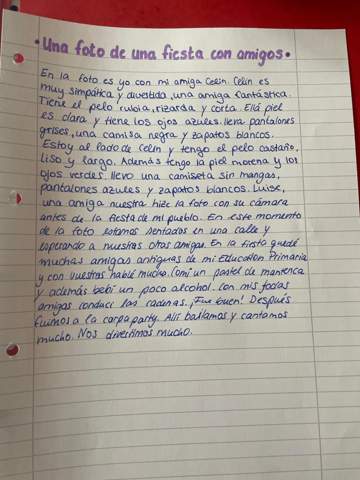 • Una foto de una fiesta con amigos •
En la foto es yo con mi amiga Celin. Celin es
muy simpática y divertida, una amiga fantástica.
Tiene el pelo rubia, rizarda y corta. Ella piel
es clara y tiene los ojos azules. lleva pantalones
grises, una camisa negra y zapatos blancos.
Estoy al lado de Celin y tengo el pelo castaño,
liso y largo. Además tengo la piel morena y los
ojos verdes. llevo una camiseta sin mangas,
pantalones azules y zapatos blancos. Luise,
una amiga nuestra hize la foto con su cámara
antes de la fiesta de mi pueblo. En este momento
de la foto estamos sentados en una calle y
esperando a nuestras otras amigas. En la fiesta quedé
muchas amigas antiguas de mi Education Primaria
y con vuestras hablé mucho. Comí un pastel de manteca
y además bebí un poco alcohol. Con mis todas
amigas conducí las cadenas. ¡Fue buen! Después
fuimos a la carpaparty. Allí bailamos y cantamos
mucho. Nos divertimos mucho.